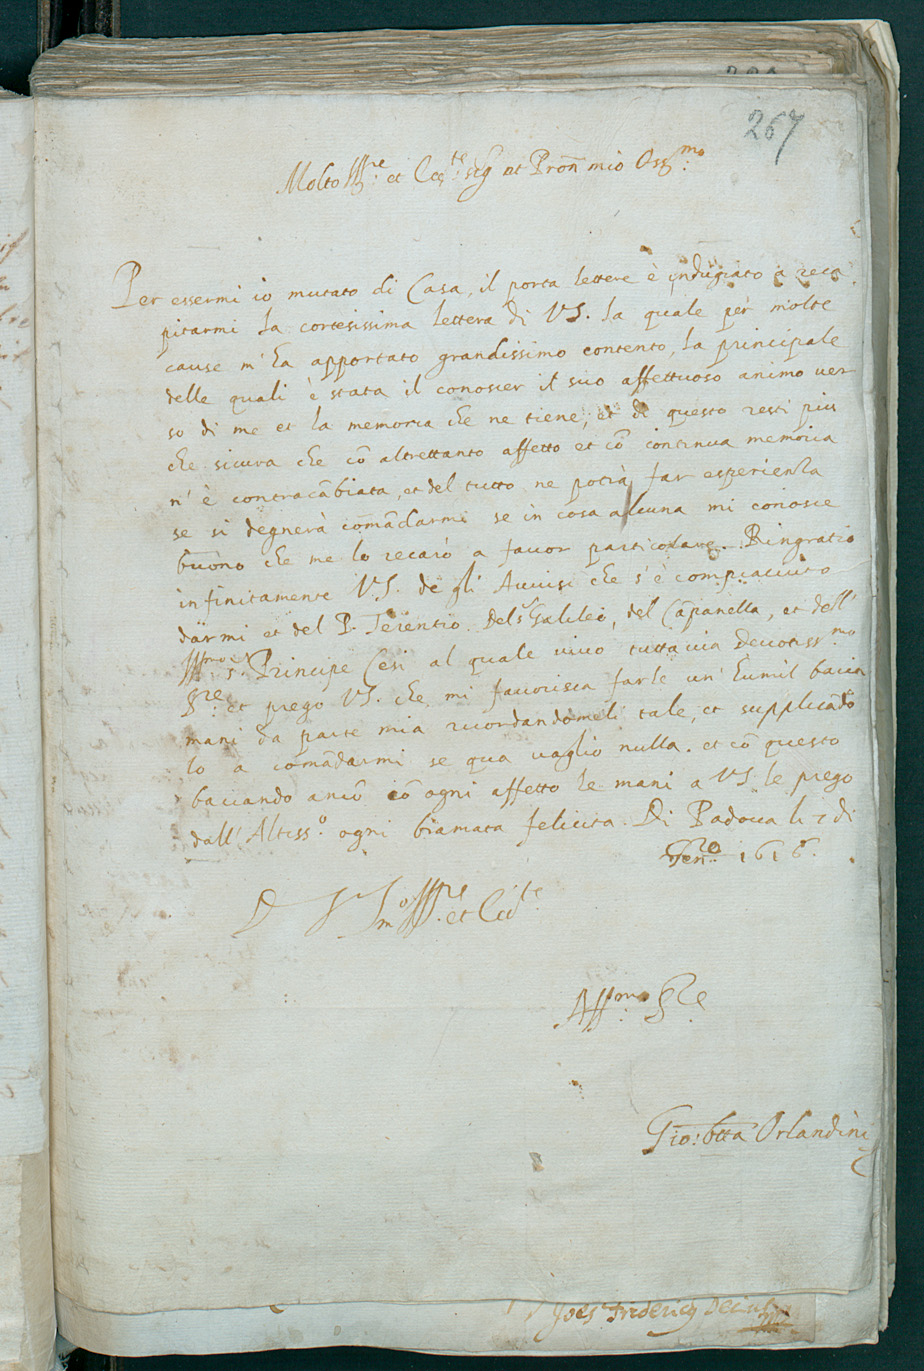 267
Molto Ill.re et Ecc.te Sig et Pron mio Oss.mo
Per essermi io mutato di Casa, il porta lettere è indugiato a reca
pitarmi la cortesissima lettera di VS. la quale per molte
cause m'ha apportato grandissimo contento, la principale
delle quali è stata il conoscer il suo affettuoso animo uer
so di me et la memoria che ne tiene, et di questo resti piu
che sicura che cõ altrettanto affetto et cõ continua memoria
n'è contracãbiata, et del tutto ne potrà far esperienza
se si degnerà comãdarmi se in cosa alcuna mi conosce
buono che me lo recarò a fauor particolare. Ringratio
infinitamente VS. de gli Auuisi che s'è compiacciuto
darmi et del P. Terentio. Del s.r Galileo, del Cãpanella, et dell'
Ill.mo s.r Principe Cesi al quale uiuo tuttauia Deuotiss.mo
S.re et prego VS. che mi fauorisca farle un' humil bacia
mani da parte mia ricordandomeli tale, et supplicãdo
lo a comãdarmi se qua uaglio nulla. et cõ questo
baciando anco cõ ogni affetto le mani a VS. le prego
dall' Altiss.o ogni bramata felicita. Di Padoua li 2 di
Gen.ro 1616.
D V S m.o Ill.re et Ecc.te
Aff.mo S.re
Gio: Btta Orlandini
Joes Fridericq